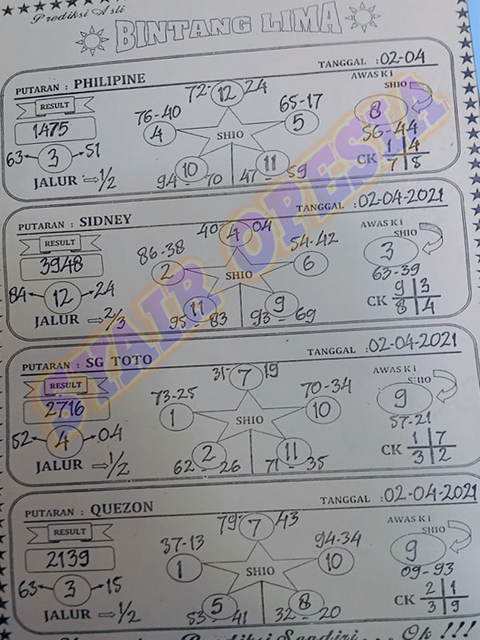 Prediksi Asli
BINTANG LIMA
PUTARAN : PHILIPINE
TANGGAL : 02-04
RESULT
1475
63 3 51
JALUR ⇒ 1/2
72- 12 24
76-40
4
65-17
5
SHIO
10
94 - 70
11
47 - 59
AWAS Ki
SHIO
8
56-44
CK 1 4
7 5
PUTARAN : SIDNEY
TANGGAL : 02-04-2021
RESULT
3948
84 12 24
JALUR ⇒ 2/3
40 4 04
86-38
2
54-42
6
SHIO
11
95 - 83
9
93 - 69
AWAS Ki
SHIO
3
63-39
CK 9 3
8 4
PUTARAN : SG TOTO
TANGGAL : 02-04-2021
RESULT
2716
52 4 04
JALUR ⇒ 1/2
31- 7 19
73-25
1
70-34
10
SHIO
2
62 - 26
11
71 - 35
AWAS Ki
SHIO
9
57-21
CK 1 7
3 2
PUTARAN : QUEZON
TANGGAL : 02-04-2021
RESULT
2139
63 3 15
JALUR ⇒ 1/2
79- 7 43
37-13
1
94-34
10
SHIO
5
53 - 41
8
32 - 20
AWAS Ki
SHIO
9
09-93
CK 2 1
3 9
Prediksi Sendiri ... Ok !!!
SYAIR OPESIA